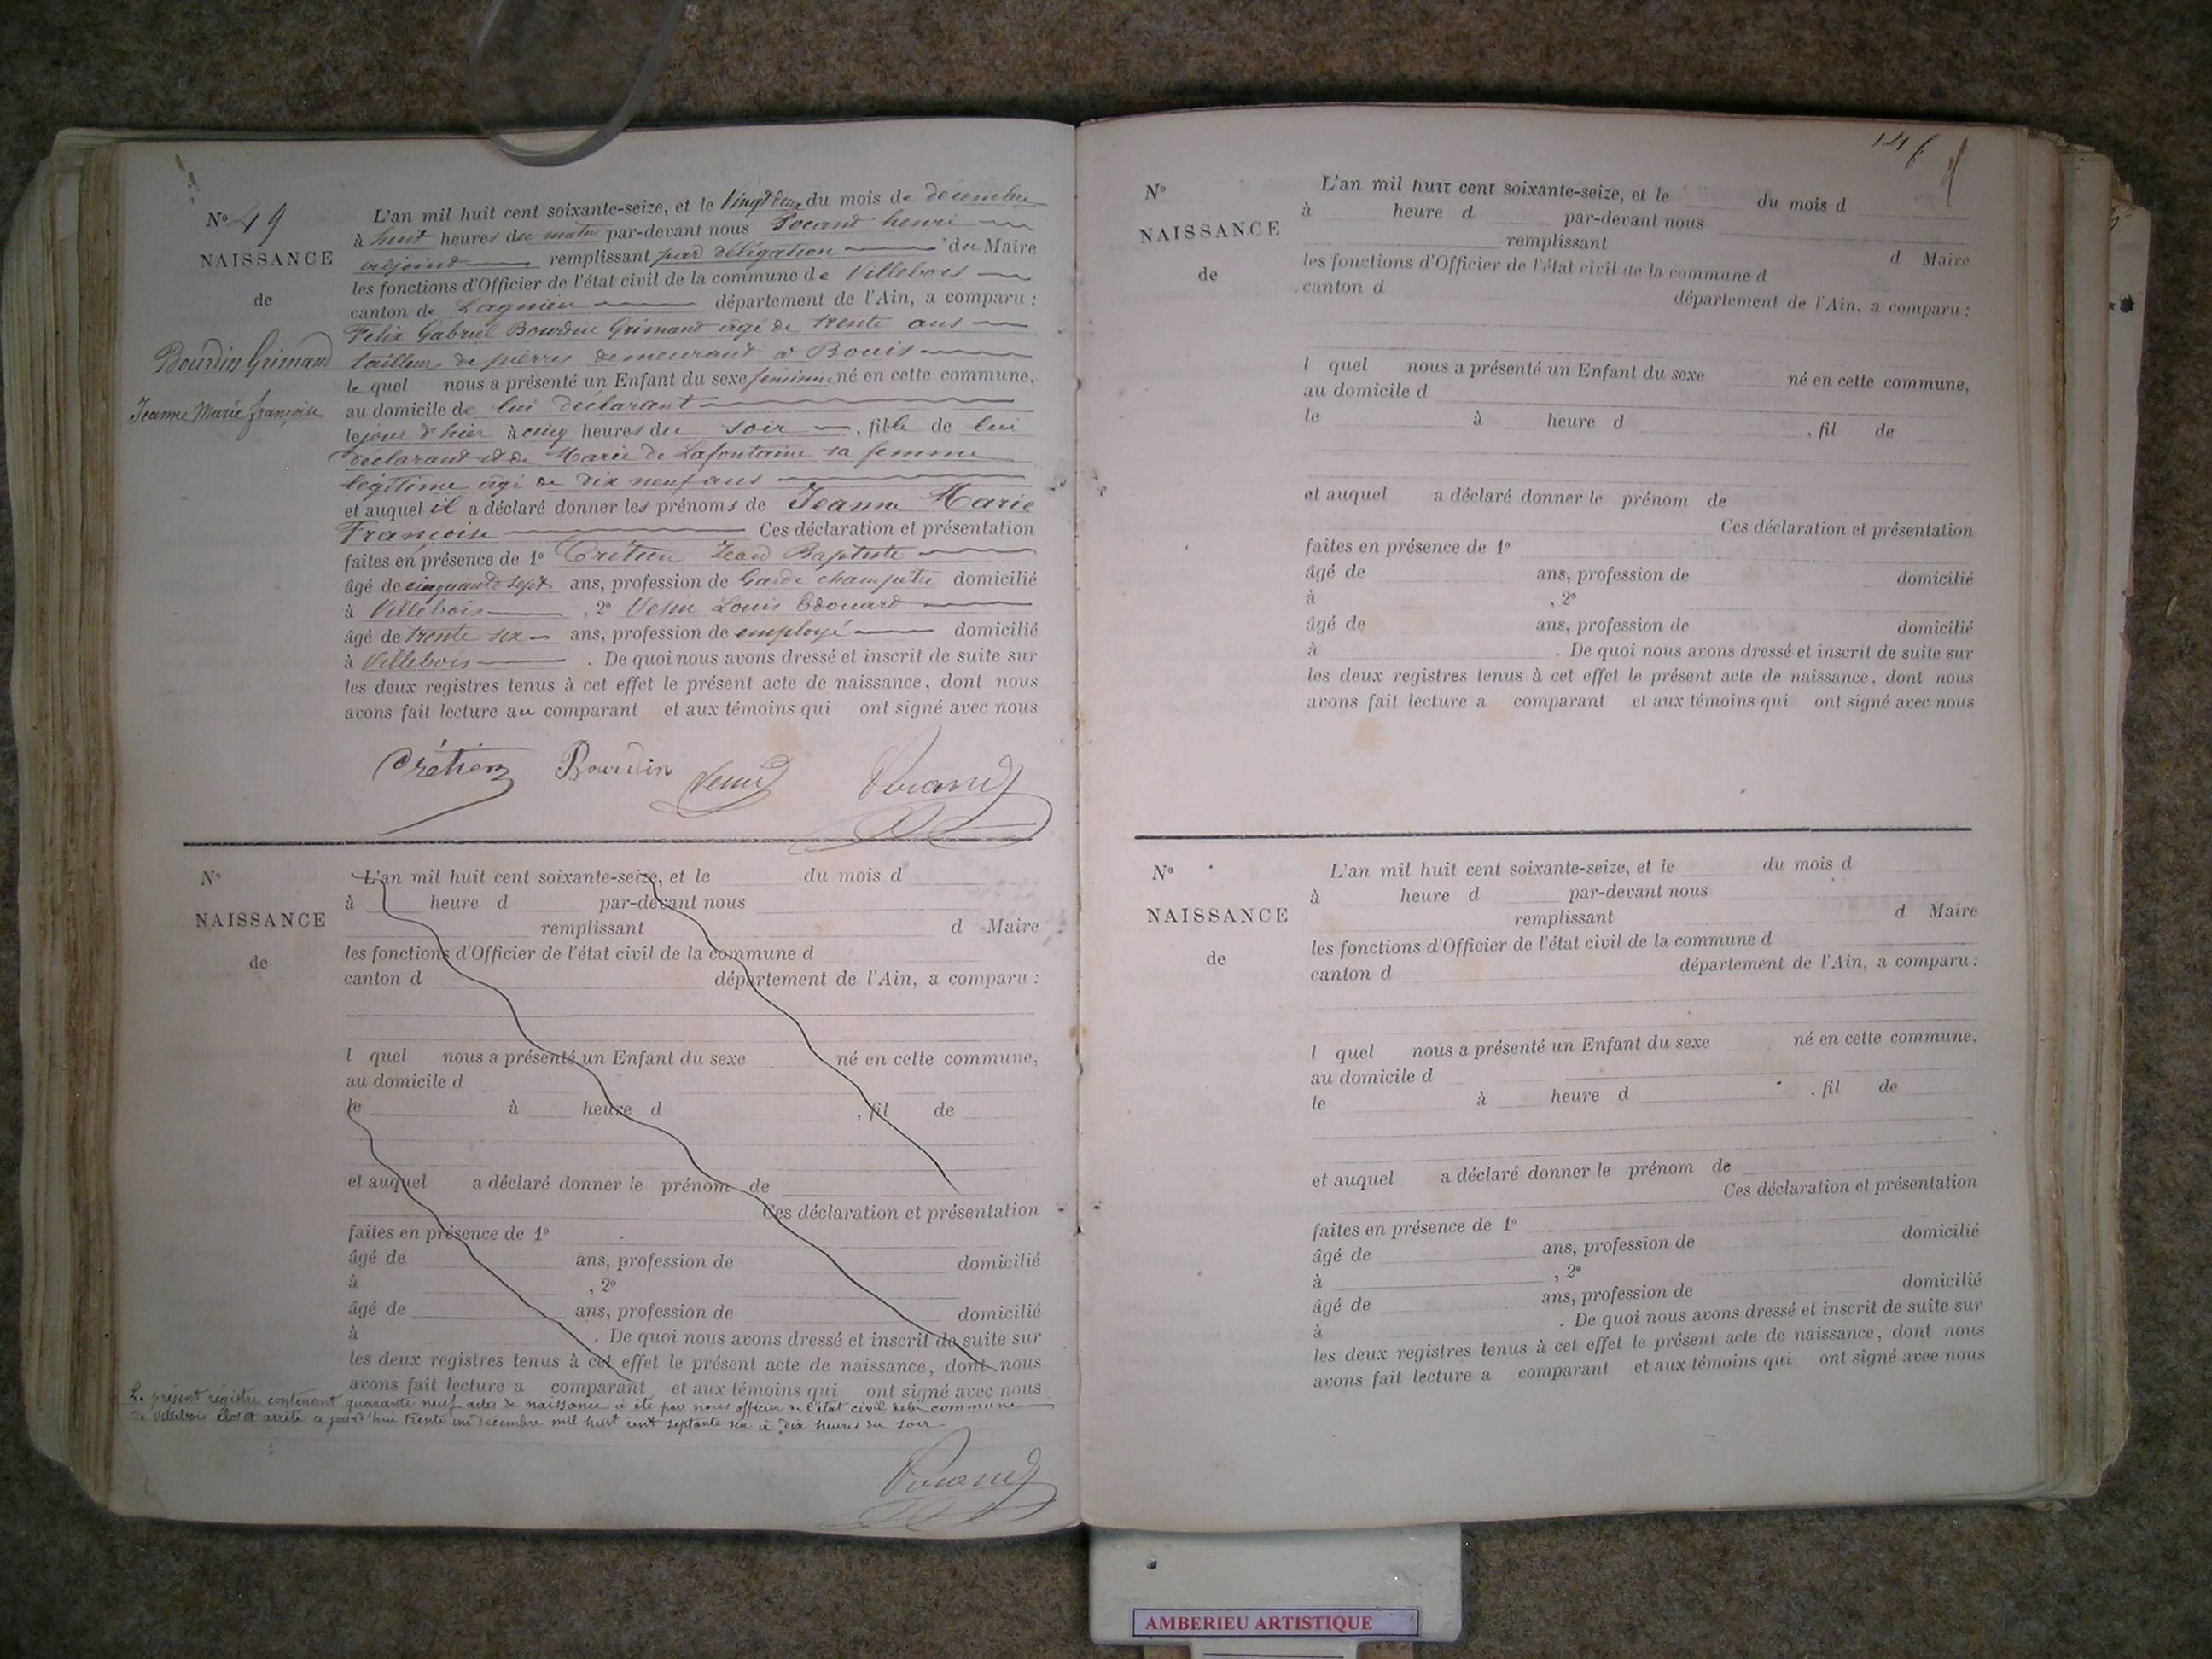 N° 49
NAISSANCE
de
Bourdin Grimaud
Jeanne Marie françoise
L'an mil huit cent soixante-seize, et le Vingt deux du mois de décembre
à huit heures du matin par-devant nous Pocand henri
adjoint remplissant par délégation du Maire
les fonctions d'Officier de l'état civil de la commune de Villebois
canton de Lagnieu département de l'Ain, a comparu :
Felix Gabriel Bourdin Grimand âgé de trente ans
tailleur de pierres demeurant a Bouis
le quel nous a présenté un Enfant du sexe féminin né en cette commune,
au domicile de lui déclarant
le jour d'hier à cinq heures du soir , fille de lui
déclarant et de Marie de Lafontaine sa femme
légitime âgé de dix neuf ans
et auquel il a déclaré donner les prénoms de Jeanne Marie
Françoise Ces déclaration et présentation
faites en présence de 1° Crétien Jean Baptiste
âgé de cinquante sept ans, profession de Garde champêtre domicilié
à Villebois , 2° Louis Edouard
âgé de trente six ans, profession de employé domicilié
à Villebois . De quoi nous avons dressé et inscrit de suite sur
les deux registres tenus à cet effet le présent acte de naissance, dont nous
avons fait lecture au comparant et aux témoins qui ont signé avec nous
Crétien Bourdin
N°
NAISSANCE
de
L'an mil huit cent soixante-seize, et le du mois d
à heure d par-devant nous
remplissant d Maire
les fonctions d'Officier de l'état civil de la commune d
canton d département de l'Ain, a comparu :
l quel nous a présenté un Enfant du sexe né en cette commune,
au domicile d
le à heure d , fil de
et auquel a déclaré donner le prénom de
Ces déclaration et présentation
faites en présence de 1°
âgé de ans, profession de domicilié
à , 2°
âgé de ans, profession de domicilié
à . De quoi nous avons dressé et inscrit de suite sur
les deux registres tenus à cet effet le présent acte de naissance, dont nous
avons fait lecture a comparant et aux témoins qui ont signé avec nous
Le présent régistre contenant quarante neuf actes de naissance a été par nous officier de l'état civil de la commune
de Villebois clos et arrêté ce jourd'hui trente un decembre mil huit cent septante six à dix heures du soir
N°
NAISSANCE
de
L'an mil huit cent soixante-seize, et le du mois d
à heure d par-devant nous
remplissant d Maire
les fonctions d'Officier de l'état civil de la commune d
canton d département de l'Ain, a comparu :
l quel nous a présenté un Enfant du sexe né en cette commune,
au domicile d
le à heure d , fil de
et auquel a déclaré donner le prénom de
Ces déclaration et présentation
faites en présence de 1°
âgé de ans, profession de domicilié
à , 2°
âgé de ans, profession de domicilié
à . De quoi nous avons dressé et inscrit de suite sur
les deux registres tenus à cet effet le présent acte de naissance, dont nous
avons fait lecture a comparant et aux témoins qui ont signé avec nous
N°
NAISSANCE
de
L'an mil huit cent soixante-seize, et le du mois d
à heure d par-devant nous
remplissant d Maire
les fonctions d'Officier de l'état civil de la commune d
canton d département de l'Ain, a comparu :
l quel nous a présenté un Enfant du sexe né en cette commune.
au domicile d
le à heure d , fil de
et auquel a déclaré donner le prénom de
Ces déclaration et présentation
faites en présence de 1°
âgé de ans, profession de domicilié
à , 2°
âgé de ans, profession de domicilié
à . De quoi nous avons dressé et inscrit de suite sur
les deux registres tenus à cet effet le présent acte de naissance, dont nous
avons fait lecture a comparant et aux témoins qui ont signé avec nous
AMBERIEU ARTISTIQUE